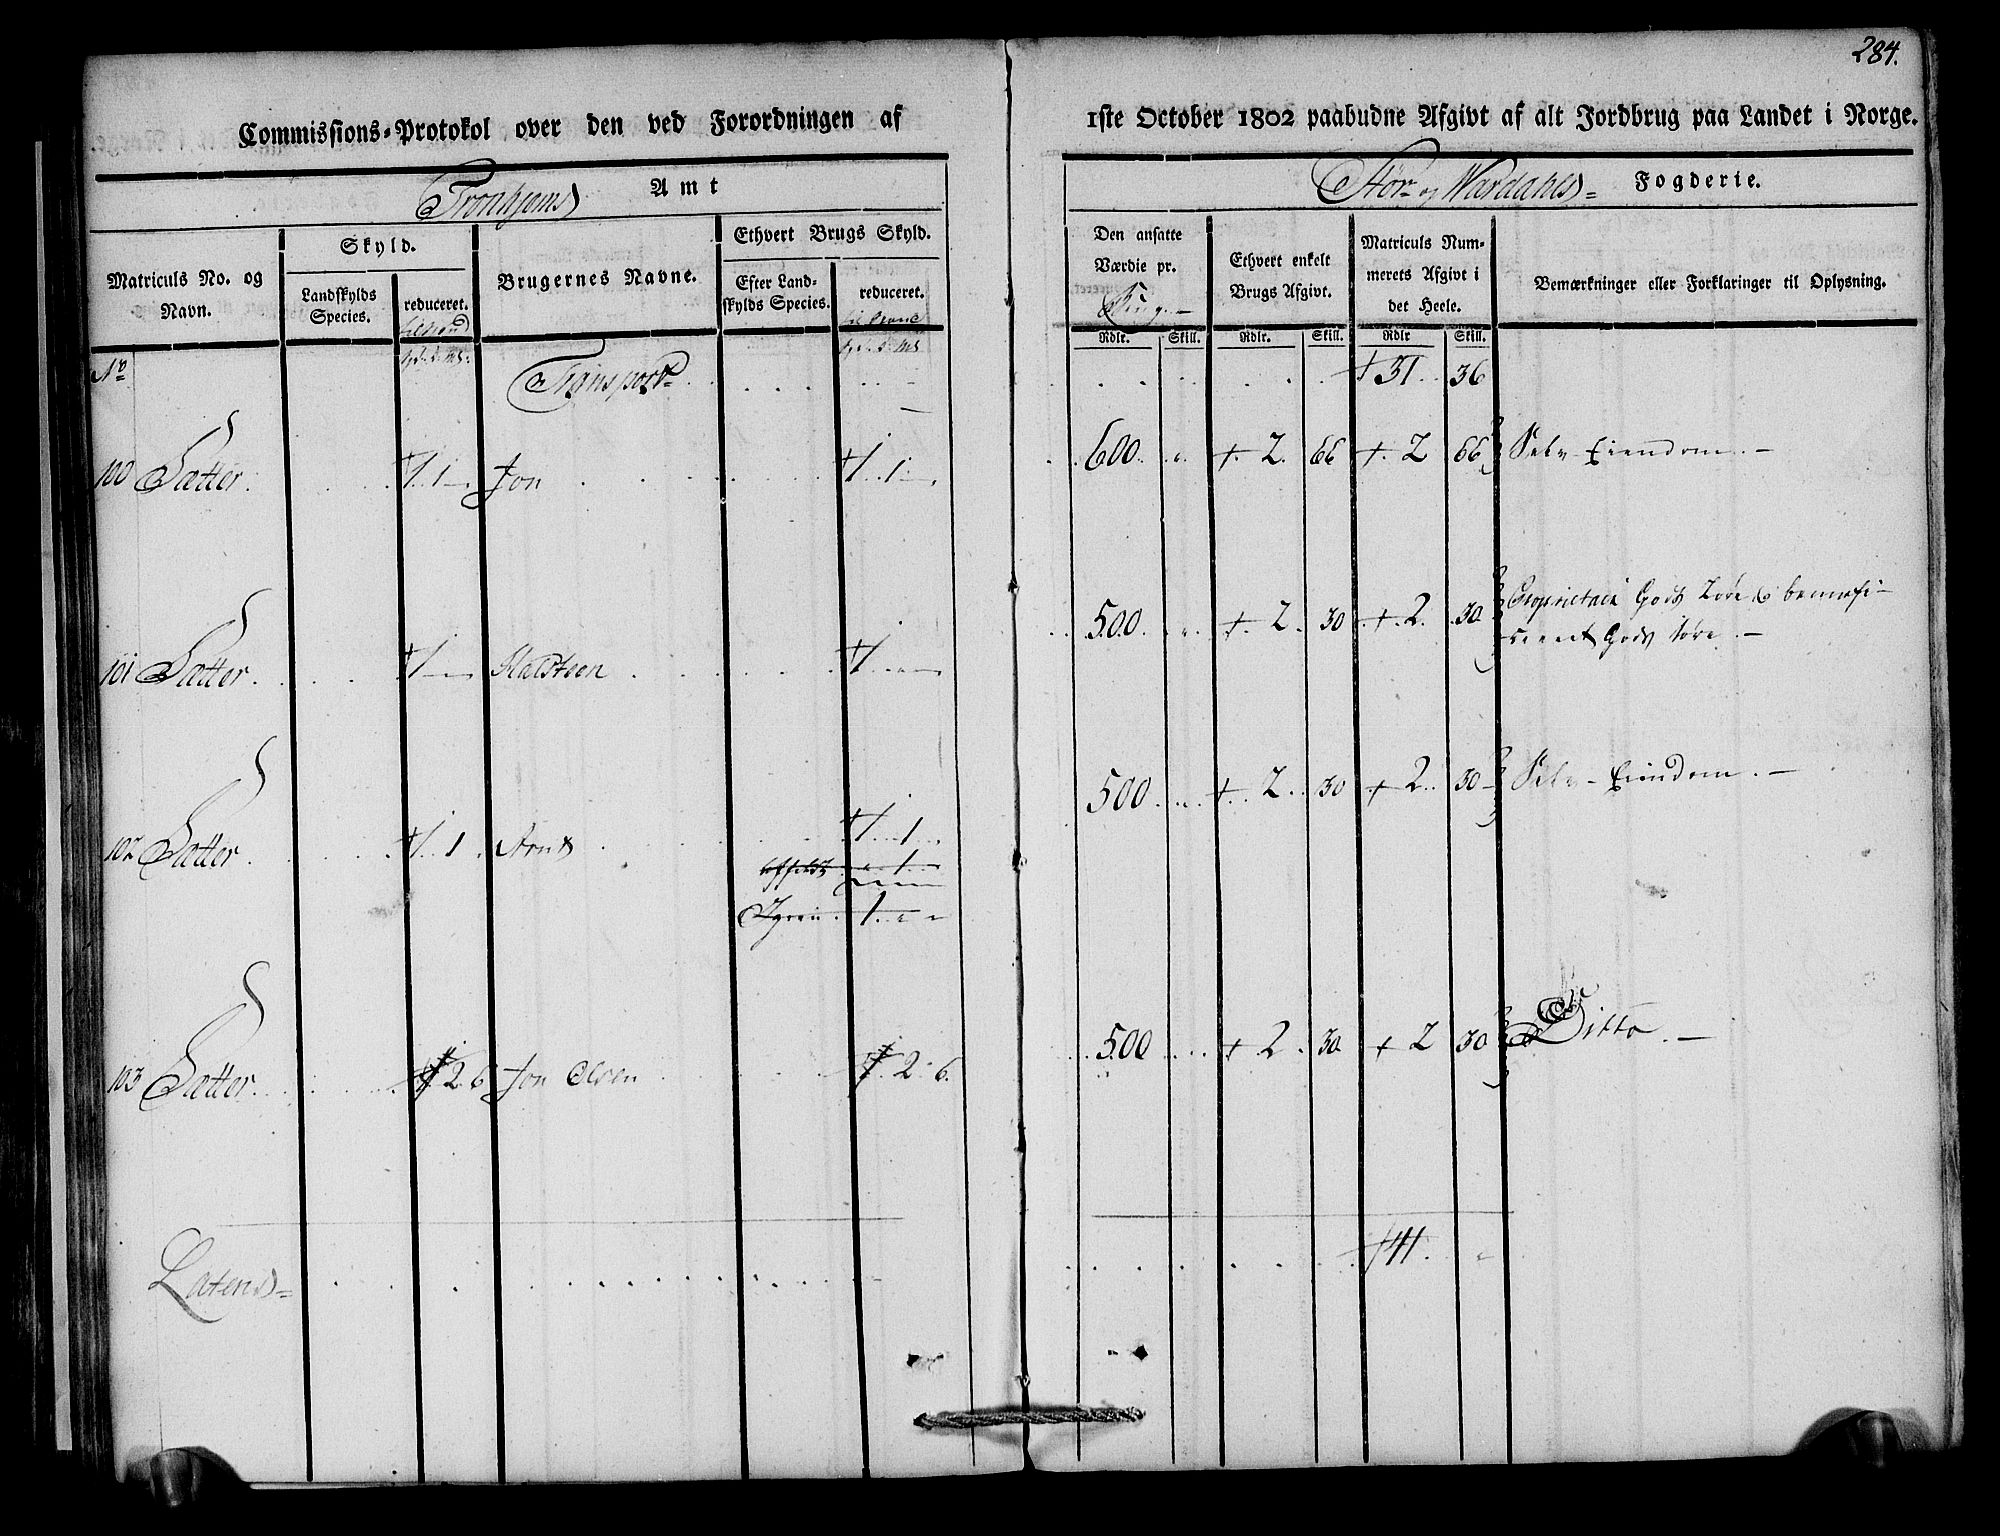 284.
Commissions-Protokol over den ved Forordningen af
1ste October 1802 paabudne Afgivt af alt Jordbrug paa Landet i Norge.
Tronhjems Amt
Stør- og Wærdahls- Fogderie.
Matriculs No. og Navn.
Skyld.
Landskylds Species.
reduceret.
Brugernes Navne.
Ethvert Brugs Skyld.
Efter Landskylds Species.
reduceret.
Den ansatte Værdie pr.
Ethvert enkelt Brugs Afgivt.
Matriculs Nummerets Afgivt i det Heele.
Bemærkninger eller Forklaringer til Oplysning.
Rdlr. Skill. Rdlr. Skill. Rdlr Skill.
No Transport 31 36
100 Sætter. 1. 1 Jon 1. 1 600 2. 66 2 66 Selv-Eiendom.
101 Sætter. 1 Halsteen 1 500 2. 30 2. 30 Proprietair Gods Søre & bennefi-
cieret Gods Søre.
102 Sætter. 1. 1 Arnt 1. 1 500 2. 30 2. 30 Selv-Eiendom.
1
1
103 Sætter. 2. 6 Jon Olsen 2. 6. 500 2. 30 2 30 Ditto.
Lateris 41.